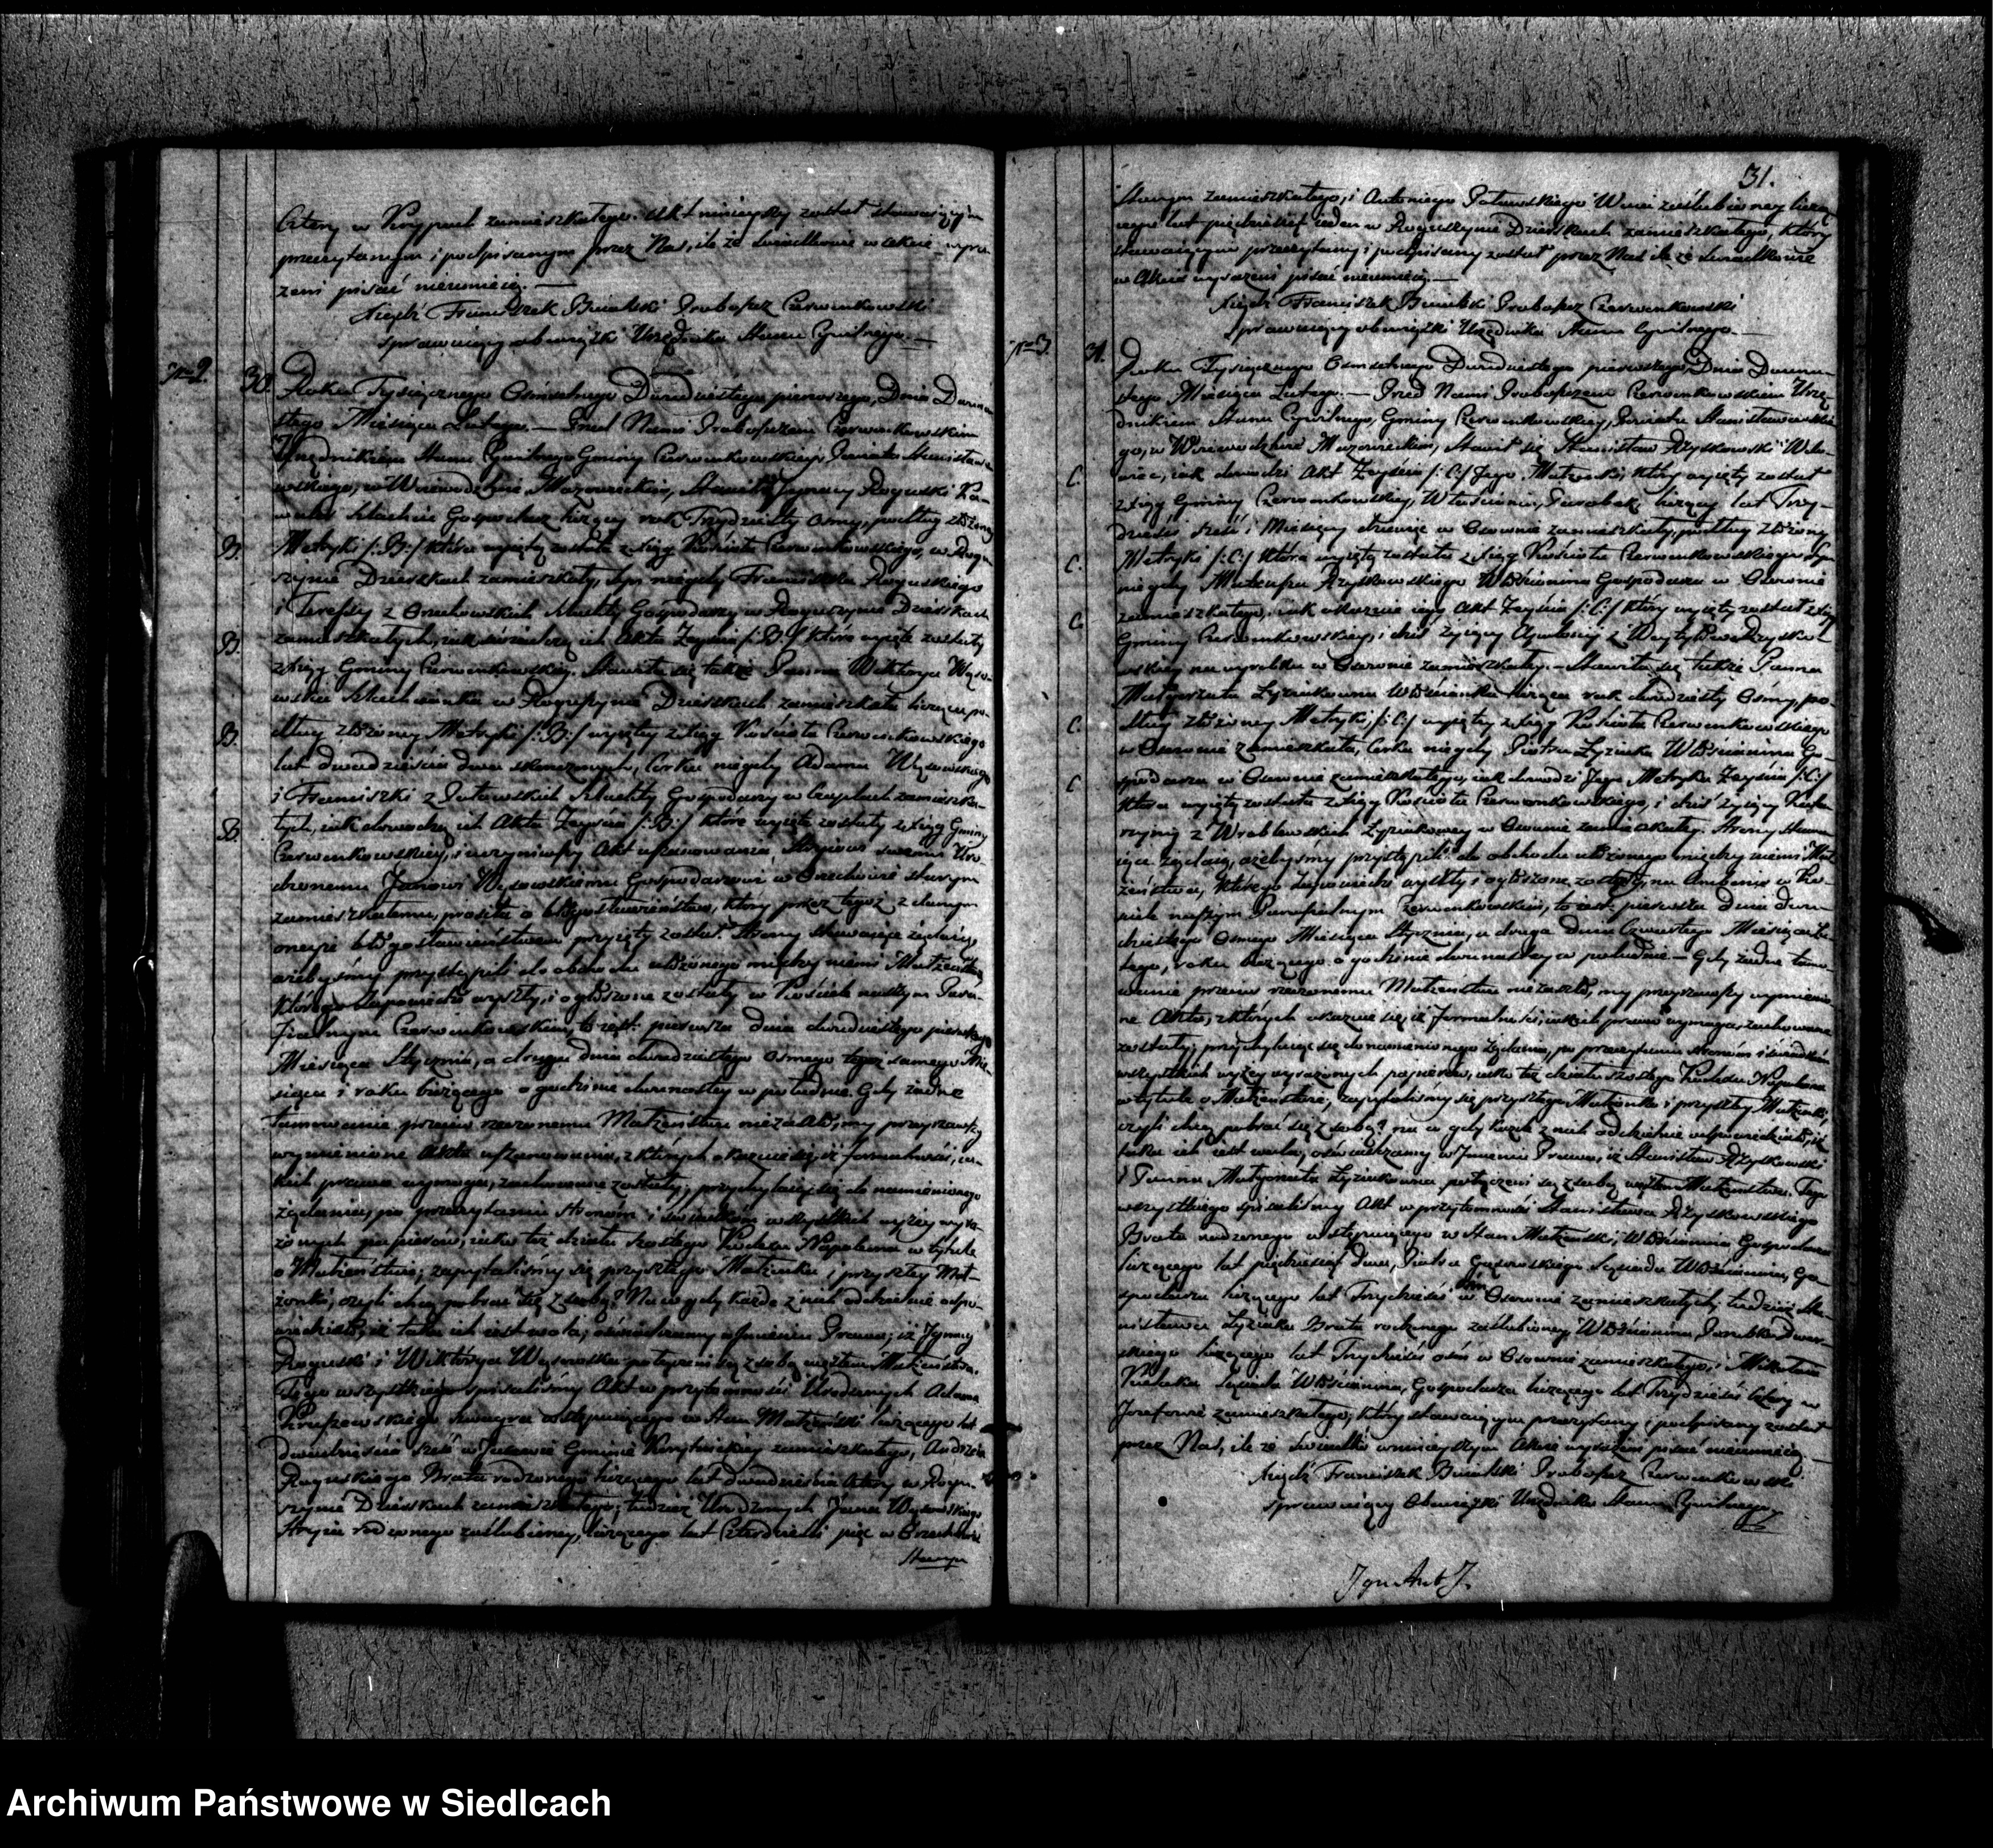 cztery w Krypach zamieszkałego. Akt niniejszy został stawającym
przeczytanym i podpisanym przez Nas, ile że świadkowie w akcie wyra-
żeni pisać nieumieią. —
Xiądz Franciszek Bruiński Proboszcz Czerwonkowski
sprawuiący obowiązki Urzędnika Stanu Cywilnego. —
Nro 2. 30. Roku Tysiącznego Osmsetnego Dwudziestego pierwszego, Dnia Dwuna-
stego Miesiąca Lutego. — Przed Nami Proboszczem Czerwonkowskim
Urzędnikiem Stanu Cywilnego Gminy Czerwonkowskiey Powiatu Stanisławo-
wskiego, w Woiewodztwie Mazowieckim, Stawił się Ignacy Roguski Ka-
waler Szlachcic Gospodarz liczący rok Trzydziesty osmy, podług złożoney
B. Metryki /:B:/ która wyięta została z Xiąg Kościoła Czerwonkowskiego, w Rogu-
szynie Dzieszkach zamieszkały, Syn niegdy Franciszka Roguskiego
i Teressy z Orzechowskich Szlachty Gospodarzy w Roguszynie Dzieszkach
B. zamieszkałych, iak dowodzą ich Akta Zeyścia /:B:/ które wyięte zostały
z Xiąg Gminy Czerwonkowskiey. Stawiła się także Panna Wiktorya Wąso-
wska Szlachcianka w Roguszynie Dzieszkach zamieszkała licząca po-
B. dług złożoney Metryki /:B:/ wyiętey z Xiąg Kościoła Czerwonkowskiego
lat dwadzieścia dwa skończonych, Corka niegdy Adama Wąsowskiego
i Franciszki z Szlachty Gospodarzy w Czaplach zamieszka-
B. łych, iak dowodzą ich Akta Zeyścia /:B:/ które wyięte zostały z Xiąg Gminy
Czerwonkowskiey, i uczyniwszy Akt uszanowania Stryiowi swemu Uro-
dzonemu Janowi Wąsowskiemu Gospodarzowi w Orzechowie starym
zamieszkałemu, prosiła o błogosławieństwo, który przez tegoż z danym
oneyże błogosławieństwem przyięty został. Strony stawaiące żądaią,
ażebyśmy przystąpili do obchodu ułożonego między niemi Małżeństwa,
którego zapowiedzie wyszły, i ogłoszone zostały w Kościele naszym Para-
fialnym Czerwonkowskim, to iest: pierwsza dnia dwudziestego pierwszego
Miesiąca Stycznia, a druga dnia dwudziestego osmego tegoż samego Mie-
siąca i roku bieżącego o godzinie dwunastey w południe. Gdy żadne
tamowanie przeciw rzeczonemu Małżeństwu niezaszło, my przeyrzawszy
wymienione Akta uszanowania, z których okazuie się, iż formalności, ia-
kich prawo wymaga, zachowane zostały; przychylaiąc się do namienionego
żądania, po przeczytaniu Stronom i świadkom wszystkich wyżey wyra-
żonych papierów, iako też działu szóstego Kodexu Napoleona w tytule
o Małżeństwie; zapytaliśmy się przyszłego Małżonka i przyszłey Mał-
żonki, czyli chcą pobrać się z sobą? Na co gdy każde z nich oddzielnie odpo-
wiedziało, iż taka ich iest wola; oświadczamy w Imieniu Prawa; iż Ignacy
Roguski i Wiktorya Wąsowska połączeni są z sobą węzłem Małżeństwa.
Tego wszystkiego spisaliśmy Akt w przytomności Urodzonych Adama
Kruszewskiego Szwagra wstępuiącego w Stan Małżeński liczącego lat
dwadzieścia sześć w Gminie zamieszkałego, Andrzeia
Roguskiego Brata rodzonego liczącego lat dwadzieścia cztery w Rogu-
szynie Dzieszkach zamieszkałego, tudzież Urodzonych Jana Wąsowskiego
Stryia rodzonego zaślubioney, liczącego lat Czterdzieści pięć w Orzechowie
Starym
31.
Starym zamieszkałego, i Antoniego Wuia zaślubioney liczą-
cego lat pięćdziesiąt ieden w Roguszynie Dzieszkach zamieszkałego, który
stawaiącym przeczytany i podpisany został przez Nas ile że świadkowie
w Akcie wyrażeni pisać nieumieią. —
Xiądz Franciszek Bruiński Proboszcz Czerwonkowski
sprawuiący obowiązki Urzędnika Stanu Cywilnego. —
Nro 3. 31. Roku Tysiącznego Osmsetnego Dwudziestego pierwszego, Dnia Dwuna-
stego Miesiąca Lutego. — Przed Nami Proboszczem Czerwonkowskim Urzę-
dnikiem Stanu Cywilnego, Gminy Czerwonkowskiey, Powiatu Stanisławowskie-
go, w Woiewodztwie Mazowieckim, stawił się Stanisław Ryszkowski Wdo-
C. wiec, iak dowodzi Akt Zeyścia /:C:/ Jego Małżonki, który wyięty został
z Xiąg Gminy Czerwonkowskiey, Włościanin, Parobek, liczący lat Trzy-
dzieści sześć i Miesięcy dziewięć w Osownie zamieszkały, podług złożoney
C. Metryki /:C:/ która wyięta została z Xiąg Kościoła Czerwonkowskiego, Syn
niegdy Mateusza Ryszkowskiego Włościanina Gospodarza w Osownie
C. zamieszkałego, iak okazuie iego Akt Zeyścia /:C:/ który wyięty został z Xiąg
Gminy Czerwonkowskiey, i dziś żyiącey Apolonii z Ryszko-
wskiey na wyrobku w Osownie zamieszkałey. — Stawiła się także Panna
Małgorzata Łyziakowna Włościanka licząca rok dwudziesty osmy po-
C. dług złożoney Metryki /:C:/ wyiętey z Xiąg Kościoła Czerwonkowskiego
w Osownie zamieszkała, Corka niegdy Piotra Łyziaka Włościanina Go-
C. spodarza w Osownie zamieszkałego, iak dowodzi Jego Metryka Zeyścia /:C:/
która wyięta została z Xiąg Kościoła Czerwonkowskiego, i dziś żyiącey Kata-
rzyny z Wroblewskich Łyziakowey w Osownie zamieszkałey. Strony stawa-
iące żądaią, ażebyśmy przystąpili do obchodu ułożonego między niemi Mał-
żeństwa, którego zapowiedzie wyszły i ogłoszone zostały, na Ambonie w Ko-
ściele naszym Parafialnym Czerwonkowskim, to iest: pierwsza dnia dwu-
dziestego Osmego Miesiąca Stycznia, a druga dnia Czwartego Miesiąca Lu-
tego, roku bieżącego o godzinie dwunastey w południe — Gdy żadne tamo-
wanie przeciw rzeczonemu Małżeństwu niezaszło, my przeyrzawszy wymienio-
ne Akta, z których okazuie się, iż formalności, iakich prawo wymaga, zachowane
zostały; przychylaiąc się do namienionego żądania, po przeczytaniu Stronom i świadkom
wszystkich wyżey wyrażonych papierów, iako też działu szóstego Kodexu Napoleona
w tytule o Małżeństwie; zapytaliśmy się przyszłego Małżonka i przyszłey Małżonki,
czyli chcą pobrać się z sobą? na co gdy każde z nich oddzielnie odpowiedziało, iż
taka ich iest wola; oświadczamy w Imieniu Prawa, iż Stanisław Ryszkowski
i Panna Małgorzata Łyziakowna połączeni są z sobą węzłem Małżeństwa. Tego
wszystkiego spisaliśmy Akt w przytomności Stanisława Ryszkowskiego
Brata rodzonego wstępuiącego w Stan Małżeński, Włościanina Gospodarza
liczącego lat pięćdziesiąt dwa, Piotra Gąsowskiego Sąsiada Włościanina, Go-
spodarza liczącego lat Trzydzieści w Osownie zamieszkałych; tudzież Sta-
nisława Łyziaka Brata rodzonego zaślubioney, Włościanina Parobka Dwor-
skiego liczącego lat Trzydzieści ośm w Osownie zamieszkałego, i Mikołaia
Sąsiada Włościanina, Gospodarza liczącego lat Trzydzieści cztery w
Jozefowie zamieszkałego; który stawaiącym przeczytany i podpisany został
przez Nas, ile że świadki w ninieyszym Akcie wyrażeni pisać nieumieią —
Xiądz Franciszek Bruiński Proboszcz Czerwonkowski
sprawuiący Obowiązki Urzędnika Stanu Cywilnego
Archiwum Państwowe w Siedlcach